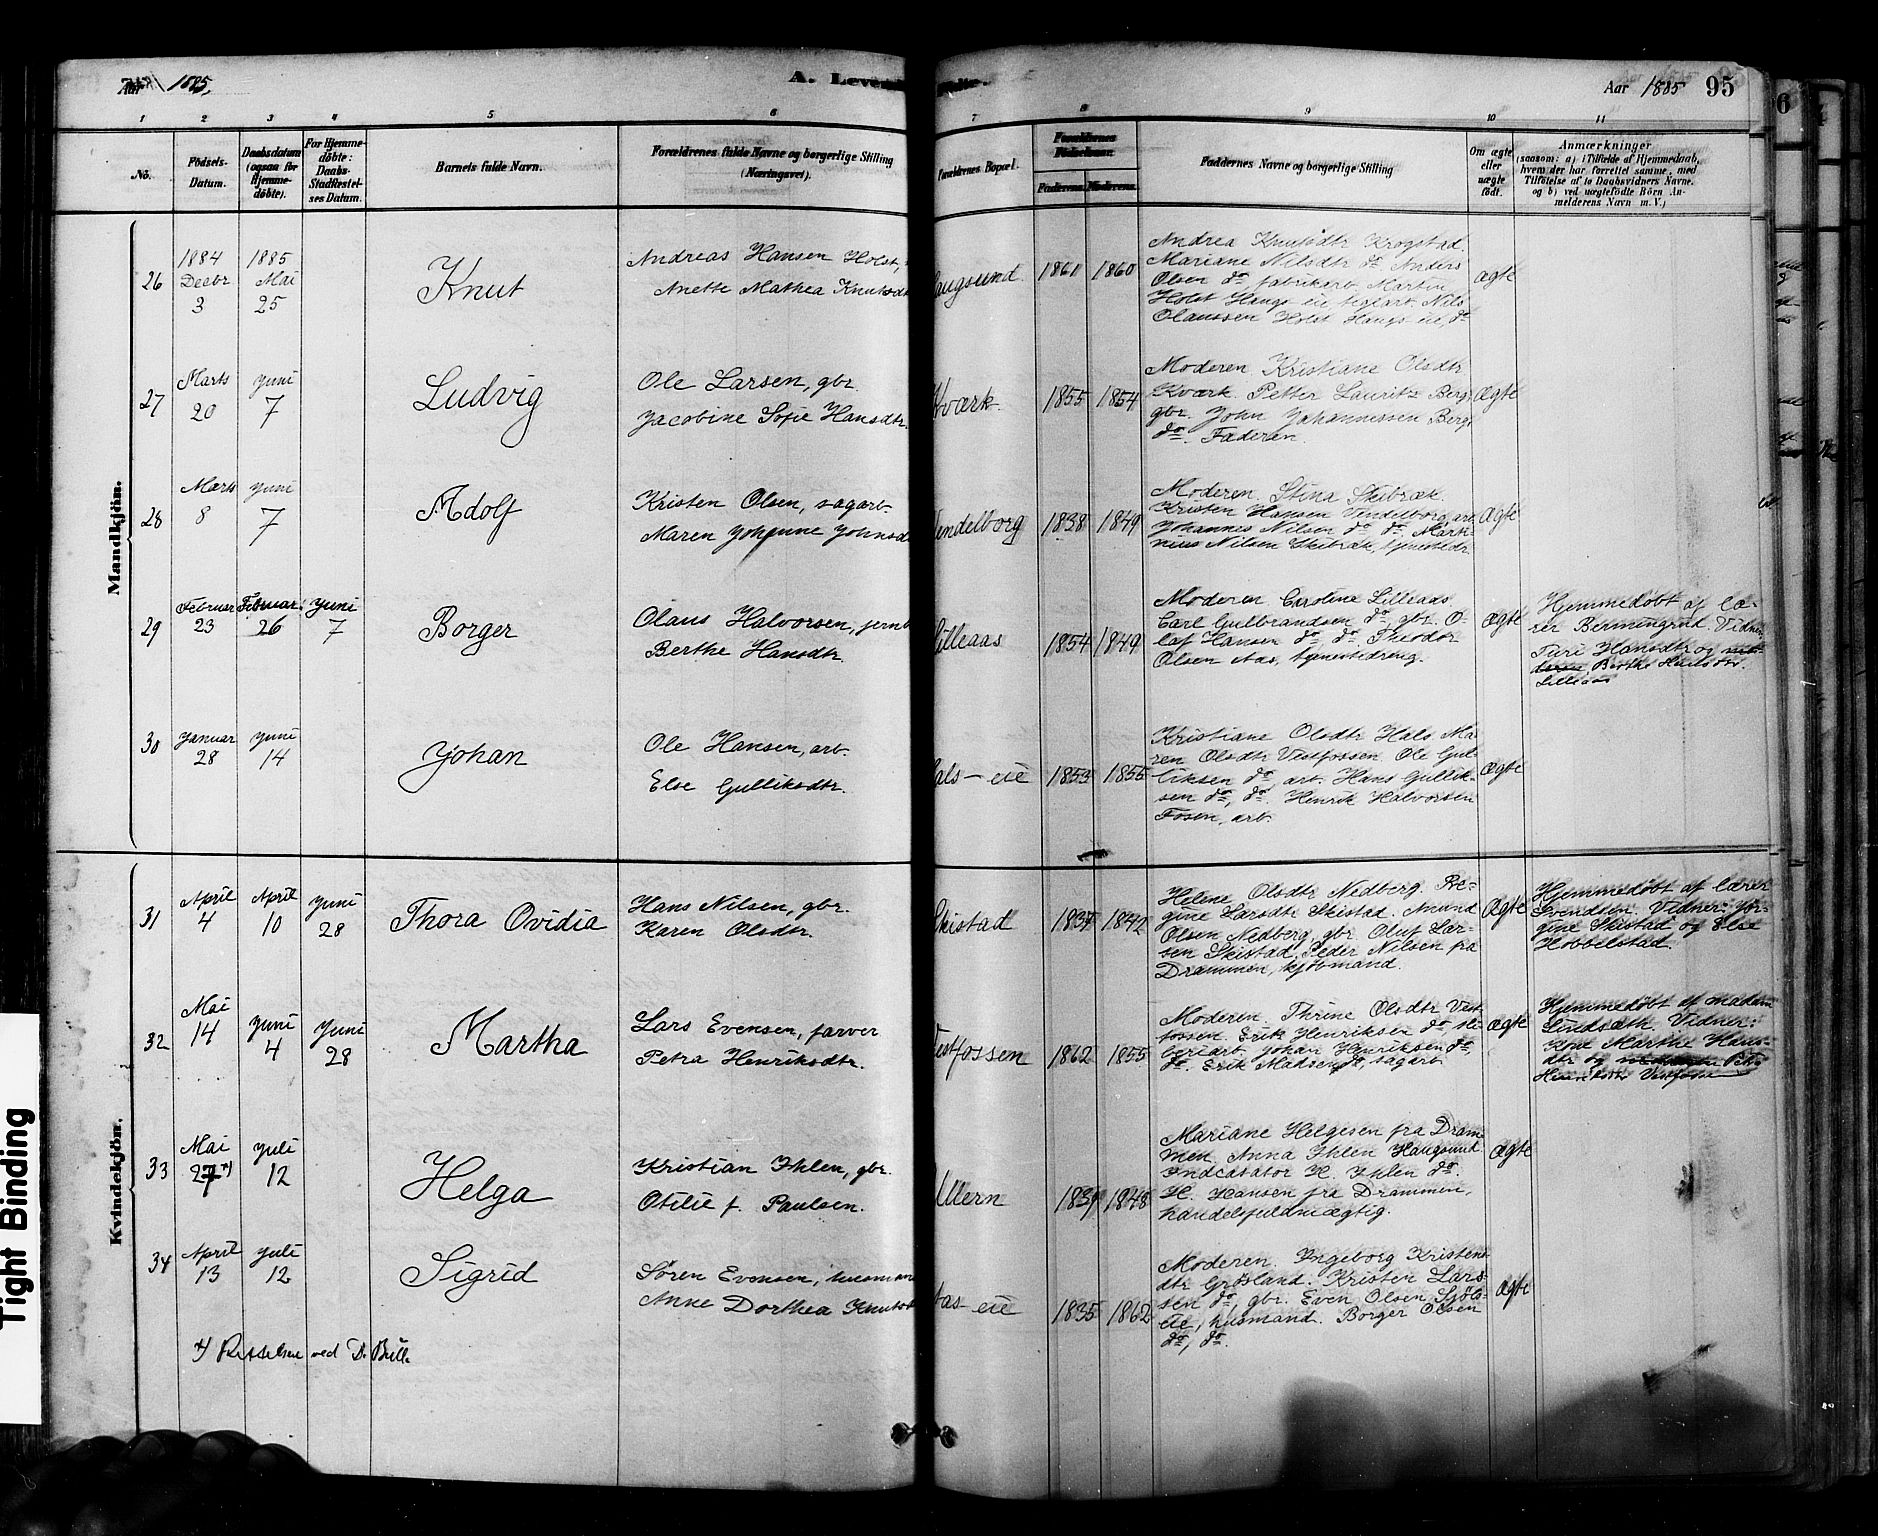 Aar 1885.
A. Leven
dte.
Aar 1885 95
1 2 3 4 5 6 7 8 9 10 11
No.
Födsels-
Datum.
Daabsdatum
(ogsaa for
Hjemme-
döbte).
For Hjemme-
döbte:
Daabs-
Stadfæstel-
ses Datum.
Barnets fulde Navn.
Forældrenes fulde Navne og borgerlige Stilling
(Næringsvei).
Forældrenes Bopæl.
Forældrenes
Fødselsaar.
Faderens. Moderens.
Faddernes Navne og borgerlige Stilling
Om ægte
eller
uægte
födt.
Anmærkninger
(saasom: a) i Tilfælde af Hjemmedaab,
hvem der har forrettet samme, med
Tilföielse af to Daabsvidners Navne.
og b) ved uægtefödte Börn An-
melderens Navn m. V.)
Mandkjön.
26
1884
Decbr
3
1885
Mai
25
Knut
Andreas Hansen Holst,
Anette Mathea Knutsdt
augsund
1861 1860
Andrea Knutsdtr Krogstad
Mariane Nilsdtr do. Anders
Olsen do, fabrikarb. Martin
Holst Haugs-eie teglarb. Nils
Olaussen Holst Haugs-eie, do
ægte
27
Marts
20
Juni
7
Ludvig
Ole Larsen, gbr.
Jacobine Sofie Hansdtr.
Kværk.
1855 1854
Moderen. Kristiane Olsdtr
Kværk. Petter Lauritz Berg,
gbr. John Johannessen Berg,
do. Faderen.
Ægte
28
Marts
8
Juni
7
Adolf
Kristen Olsen, sagarb.
Maren Johanne Johnsd
endelborg
1838 1849
Moderen. Stina Skibræk.
Kristen Hansen Vendelborg, arb
Johannes Nilsen do do. Marti-
nius Nilsen Skibræk, tjenestedr
Ægte
29
Februar
23
Februar
26
Juni
7
Borger
Olaus Halvorsen, jernb
Berthe Hansdtr.
illeaas
1854 1849
Moderen Caroline Lilleaas
Carl Gulbrandsen do, gbr. O-
laf Hansen do do. Theodor
Olsen Aas, tjenestedreng.
Ægte
Hjemmedöbt af læ-
rer Bermingrud. Vidner:
Turi Hansdtr og
Berthe Hansdtr
Lilleaas
30
Januar
28
Juni
14
Johan
Ole Hansen, arb.
Else Gulliksdtr.
als-eie
1853 1855
Kristiane Olsdtr Hals Ma-
ren Olsdtr Vestfossen Ole Gul-
liksen do, arb. Hans Gullik-
sen do, do. Henrik Halvorsen
Fosen, arb.
Ægte
Kvindekjön.
31
April
4
April
10
Juni
28
Thora Ovidia
Hans Nilsen, gbr.
Karen Olsdtr.
Skistad
1837 1842
Helene Olsdtr Nedberg. Re-
gine Larsdtr Skistad. Amund
Olsen Nedberg, gbr. Oluf Lar-
sen Skistad. Peder Nilsen fra
Drammen, kjöbmand.
Ægte
Hjemmedöbt af lærer
Svendsen. Vidner: Jör-
gine Skistad og Else
Hobbelstad.
32
Mai
14
Juni
4
Juni
28
Martha
Lars Evensen, farver
Petra Henriksdtr.
estfossen
1862 1855
Moderen. Thrine Olsdtr Vest-
fossen. Erik Henriksen do,
Johan Henriksen do,
do. Erik Madsen do, sagarb.
Ægte
Hjemmedöbt af madam
Lindsæth. Vidner:
Kone Marthe Hans-
dtr og Petra
Henriksdtr Vestfossen
33
Mai
27 *)
Juli
12
Helga
Kristian Ihlen, gbr.
Otilie f. Paulsen.
Ullern
1839 1848
Mariane Helgesen fra Dram-
men. Anna Ihlen Haugsund.
Indcasator H. Ihlen do.
H. Hansen fra Drammen,
handelsfuldmægtig.
Ægte
34
April
13
Juli
12
Sigrid
Sören Evensen, husmand
Anne Dorthea Knutsd
aas-eie
1835 1862
Moderen. Ingeborg Kristens-
dtr Grøsland. Kristen Lars-
sen do, gbr. Even Olsen Sjöls-
eie, husmand. Borger Olsen
do, do.
Ægte
*) Rettelsen ved D. Bull.
Tight Binding